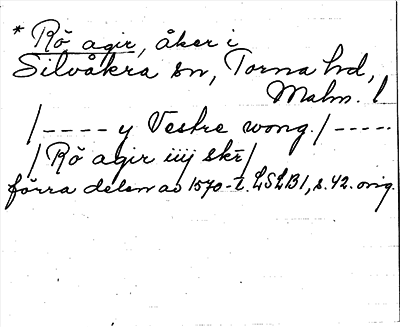 * Rö agir, åker i
Silvåkra sn, Torna hd,
Malm. l
/---- y Vestre wong./-----
/Rö agir iiij skr̄/
förra delen av 1570-t. LSLB1, s. 42. orig.